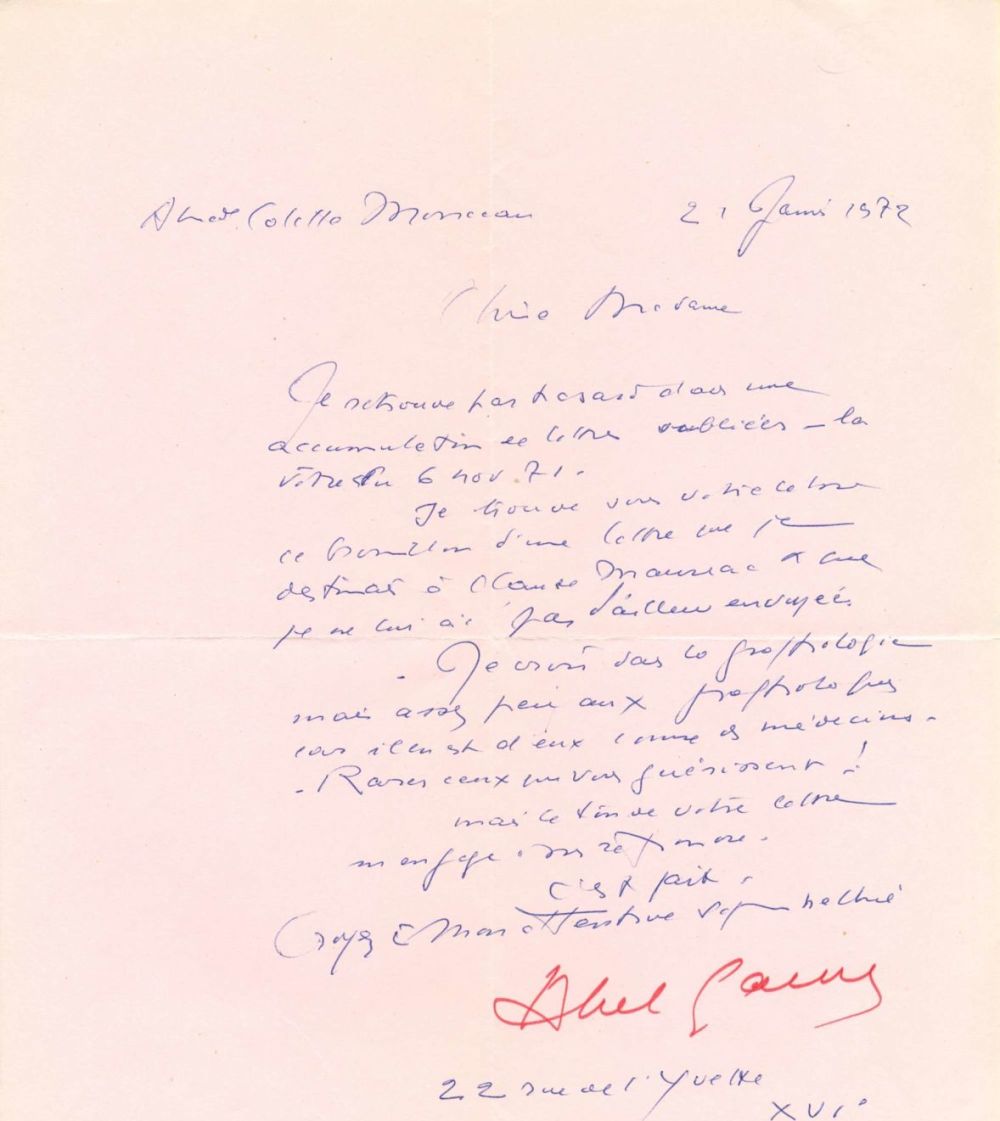 21 Janvi 1972
Chère Madame
Je retrouve par hasard dans une
accumulation de lettres oubliées – la
vôtre du 6 nov 71.
Je trouve dans votre lettre
le brouillon d'une lettre que je
destinais à Claude Mauriac & que
je ne lui ai pas d'ailleurs envoyée.
- Je crois dans la graphologie
mais assez peu aux graphologues
car il en est d'eux comme des médecins.
- Rares ceux qui vous guérissent !
mais le ton de votre lettre
m'engage à vous répondre.
C'est fait.
Croyez à mon attentive sympathie
Abel Gance
22 rue de l'Yvette
XVIe